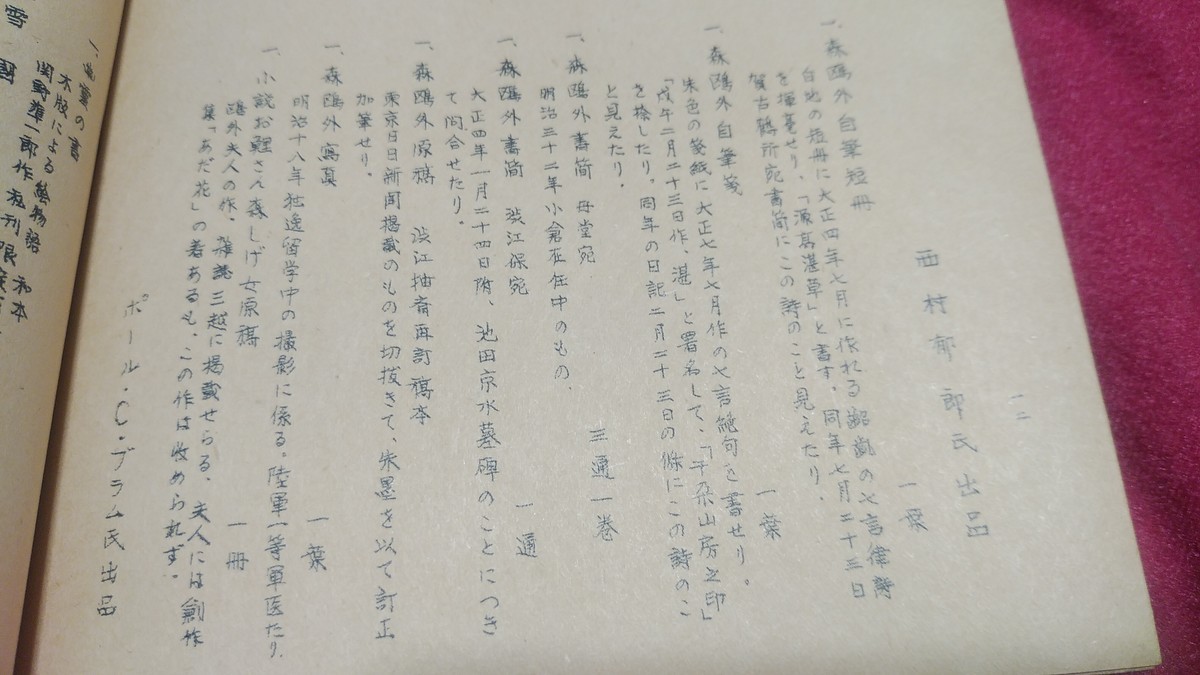 一二
西村郁郎氏出品
一、森鷗外自筆短冊　一葉
白地の短冊に大正四年七月に作れる齠齔の七言律詩
を揮毫せり。「源高湛草」と書す。同年七月二十三日
賀古鶴所宛書簡にこの詩のこと見えたり。
一、森鷗外自筆箋　一葉
朱色の箋紙に大正七年七月作の七言絶句を書せり。
「戊午二月二十三日作、湛」と署名して、「千朶山房之印」
を捺したり。同年の日記二月二十三日の條にこの詩のこ
と見えたり。
一、森鷗外書簡　母堂宛　三通一巻
明治三十二年小倉在住中のもの。
一、森鷗外書簡　渋江保宛　一通
大正四年一月二十四日附、池田京水墓碑のことにつき
て問合せたり。
一、森鷗外原稿　渋江抽斎再訂稿本
東京日日新聞掲載のものを切抜きて、朱墨を以て訂正
加筆せり。
一、森鷗外寫真　一葉
明治十八年独逸留学中の撮影に係る。陸軍一等軍医たり。
一、小説お鯉さん森しげ女原稿　一冊
鷗外夫人の作。雑誌三越に掲載せらる、夫人には創作
集「あだ花」の著あるも、この作は收められず。
ポール・C・ブラム氏出品
の書
木版による
関野準一郎作　私刊限　和本
雪